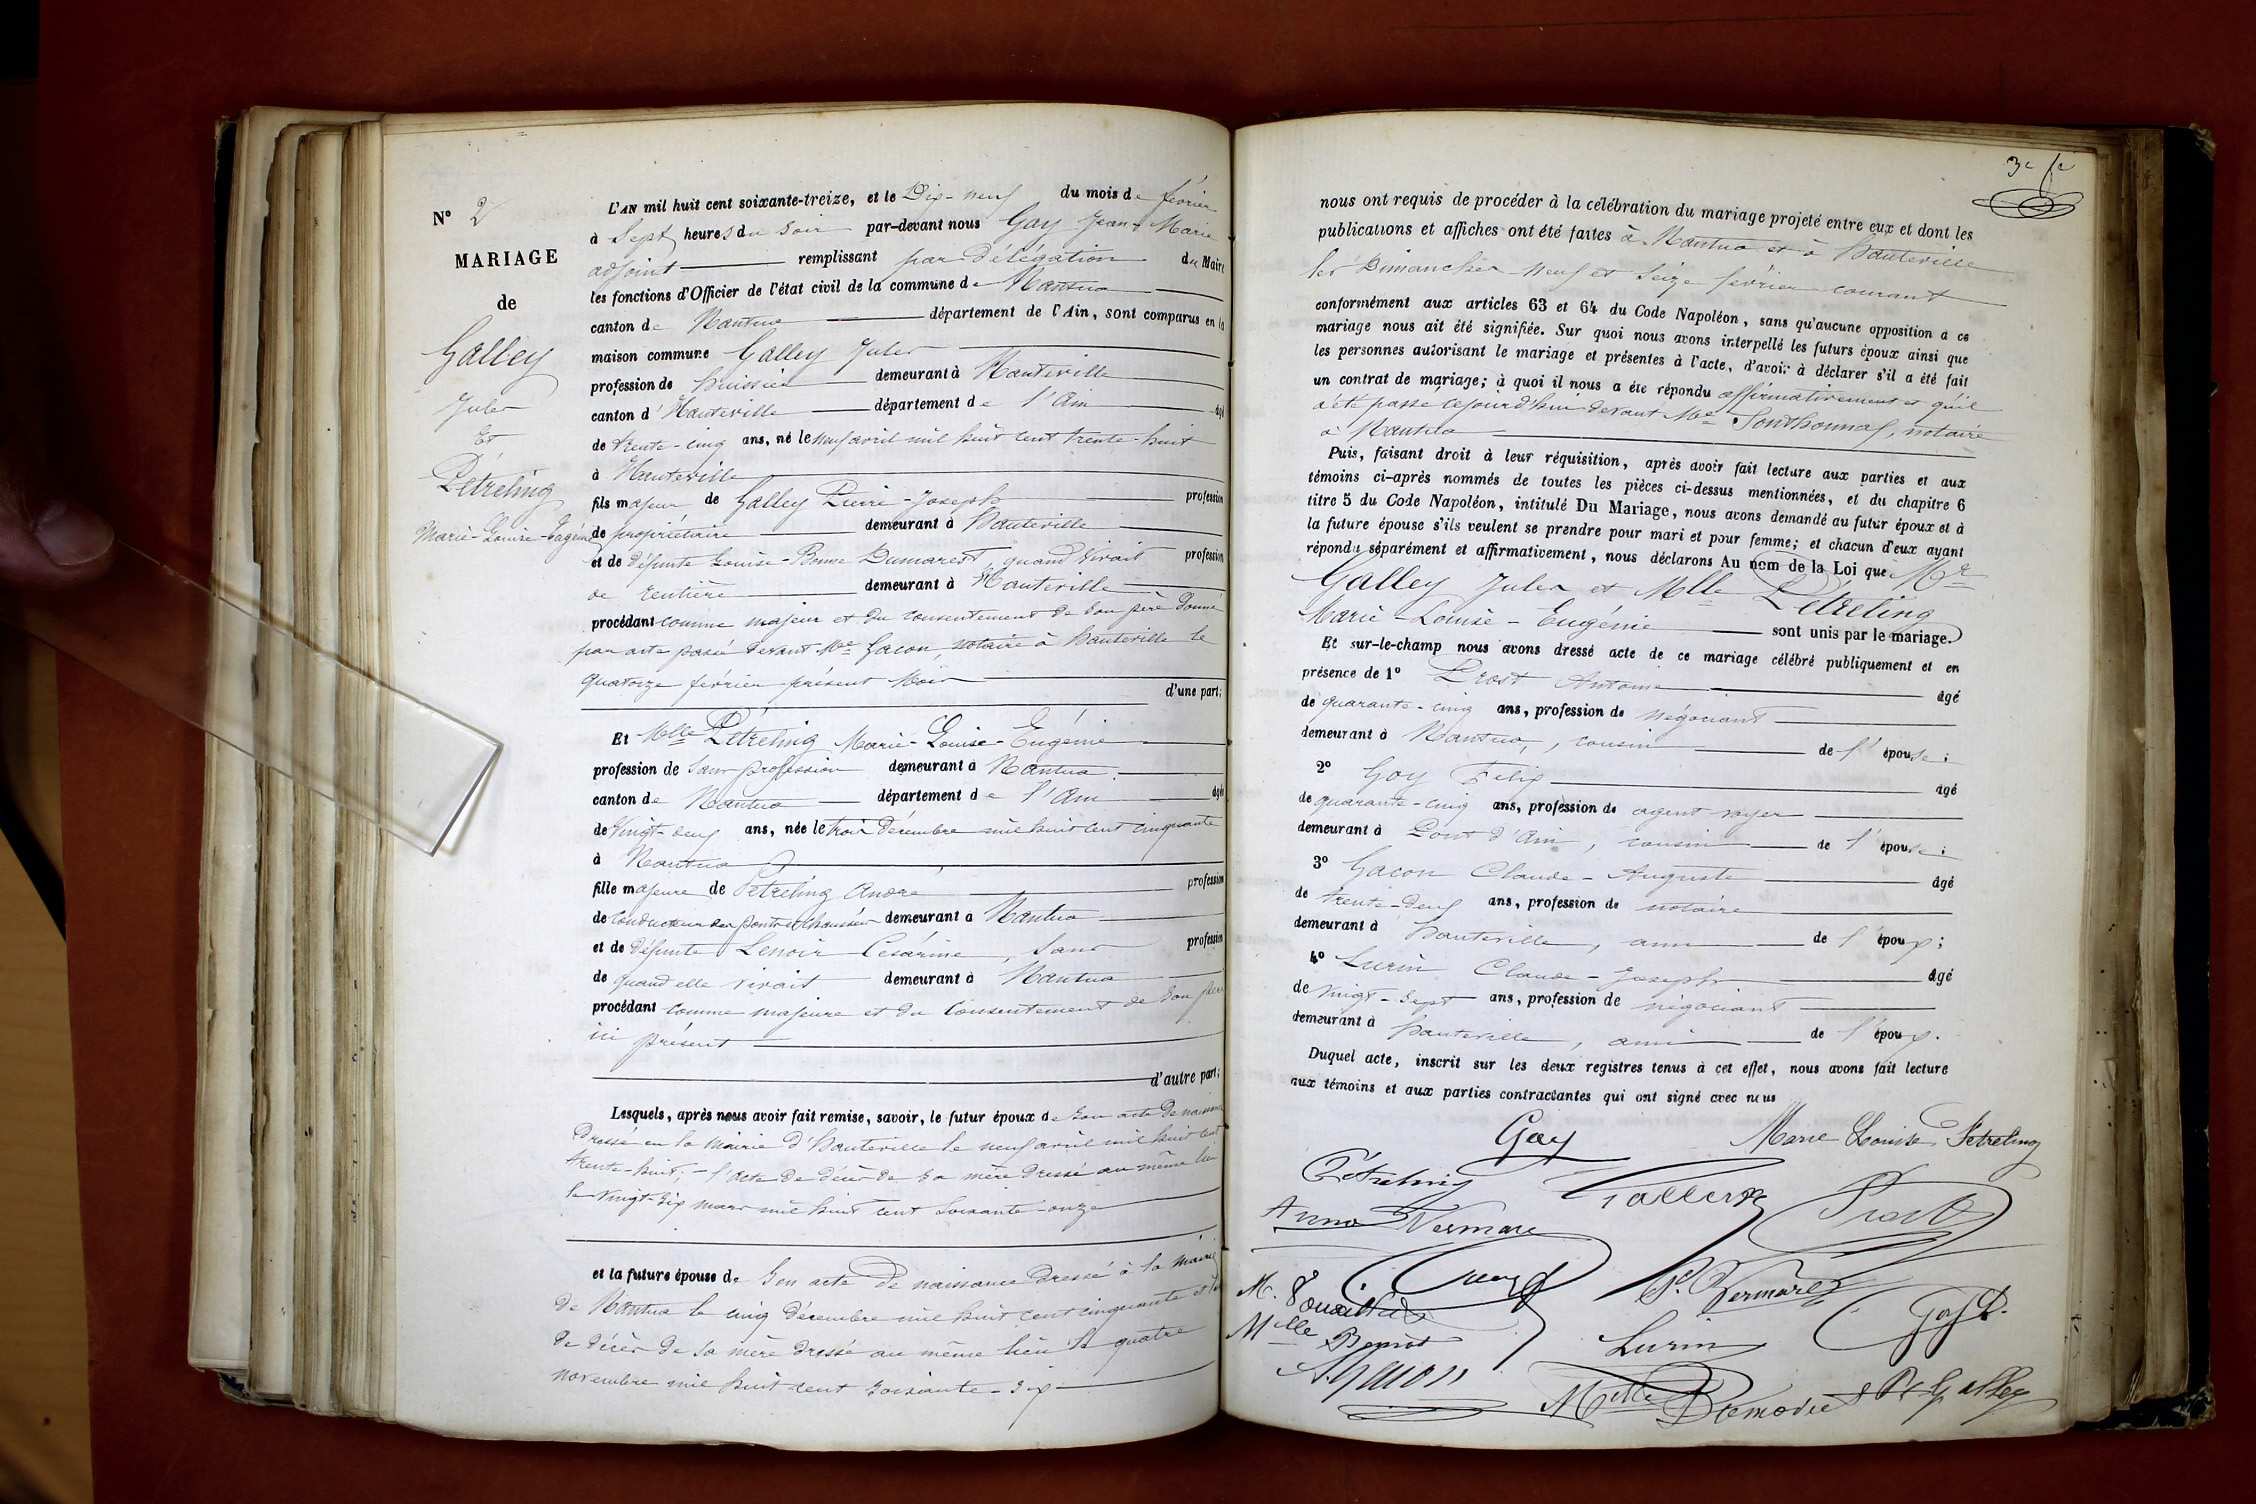 N° 2
MARIAGE
de
Galley
Jules
Et
Pétreling
Marie-Louise-Eugénie
L'AN mil huit cent soixante-treize, et le Dix-neuf du mois de février
à Sept heures du soir par-devant nous Goy Jean-Marie
adjoint remplissant par délégation du Maire
les fonctions d'Officier de l'état civil de la commune de Nantua
canton de Nantua département de l'Ain, sont comparus en la
maison commune Galley Jules
profession de huissier demeurant à Hauteville
canton d'Hauteville département de l'Ain âgé
de trente-cinq ans, né le neuf avril mil huit cent trente-huit
à Hauteville
fils majeur de Galley Pierre-Joseph profession
de propriétaire demeurant à Hauteville
et de défunte Louise-Bonne Dumarest, quand vivait profession
de rentière demeurant à Hauteville
procédant comme majeur et du consentement de son père donné
par acte passé devant Me Gacon, notaire à Hauteville le
quatorze février présent mois
d'une part;
Et Mlle Pétreling Marie-Louise-Eugénie
profession de sans profession demeurant à Nantua
canton de Nantua département de l'Ain âgée
de vingt-deux ans, née le trois décembre mil huit cent cinquante
à Nantua
fille majeure de Pétreling André profession
de conducteur des ponts et chaussées demeurant à Nantua
et de défunte Lenoir Césarine, sans profession
de quand elle vivait demeurant à Nantua
procédant comme majeure et du consentement de son père
ici présent
d'autre part;
Lesquels, après nous avoir fait remise, savoir, le futur époux de son acte de naissance
dressé en la mairie d'Hauteville le neuf avril mil huit cent
trente-huit; - l'acte de décès de sa mère dressé au même lieu
le vingt-six mars mil huit cent soixante-onze
et la future épouse de son acte de naissance dressé à la mairie
de Nantua le cinq décembre mil huit cent cinquante et
de décès de sa mère dressé au même lieu le quatre
novembre mil huit cent soixante-six
nous ont requis de procéder à la célébration du mariage projeté entre eux et dont les
publications et affiches ont été faites à Nantua et à Hauteville
les Dimanches neuf et seize février courant
conformément aux articles 63 et 64 du Code Napoléon, sans qu'aucune opposition à ce
mariage nous ait été signifiée. Sur quoi nous avons interpellé les futurs époux ainsi que
les personnes autorisant le mariage et présentes à l'acte, d'avoir à déclarer s'il a été fait
un contrat de mariage; à quoi il nous a été répondu affirmativement et qu'il
a été passé cejourd'hui devant Me Sonthonnax, notaire
à Nantua
Puis, faisant droit à leur réquisition, après avoir fait lecture aux parties et aux
témoins ci-après nommés de toutes les pièces ci-dessus mentionnées, et du chapitre 6
titre 5 du Code Napoléon, intitulé Du Mariage, nous avons demandé au futur époux et à
la future épouse s'ils veulent se prendre pour mari et pour femme; et chacun d'eux ayant
répondu séparément et affirmativement, nous déclarons Au nom de la Loi que Mr
Galley Jules et Mlle Pétreling
Marie-Louise-Eugénie sont unis par le mariage.
Et sur-le-champ nous avons dressé acte de ce mariage célébré publiquement et en
présence de 1° Prost Antoine âgé
de quarante-cinq ans, profession de négociant
demeurant à Nantua, cousin de l'épouse;
2° Goy Félix âgé
de quarante-cinq ans, profession de agent voyer
demeurant à Pont d'Ain, cousin de l'épouse;
3° Gacon Claude-Auguste âgé
de trente-deux ans, profession de notaire
demeurant à Hauteville, ami de l'époux;
4° Lurin Claude-Joseph âgé
de vingt-sept ans, profession de négociant
demeurant à Hauteville, ami de l'époux.
Duquel acte, inscrit sur les deux registres tenus à cet effet, nous avons fait lecture
aux témoins et aux parties contractantes qui ont signé avec nous
Goy Marie Louise Pétreling
Pétreling Galley Prost
Anna Vermare
P. Vermare
Goy F.
Lurin
Mlle Benoit
A. Gacon
Mlle Galley